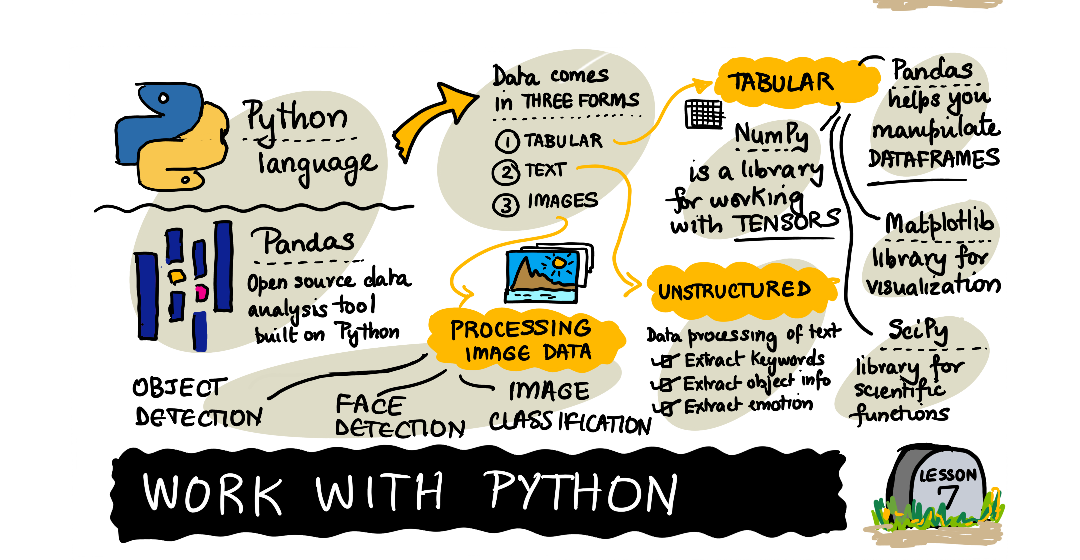 Python
language
Pandas
Open source data
analysis tool
built on Python
Data comes
in THREE FORMS
1 TABULAR
2 TEXT
3 IMAGES
TABULAR
NumPy
is a library
for working
with TENSORS
Pandas
helps you
manipulate
DATAFRAMES
Matplotlib
library for
visualization
SciPy
library for
scientific
functions
UNSTRUCTURED
Data processing of text
Extract Keywords
Extract object info
Extract emotion
PROCESSING
IMAGE DATA
OBJECT
DETECTION
FACE
DETECTION
IMAGE
CLASSIFICATION
WORK WITH PYTHON
LESSON
7